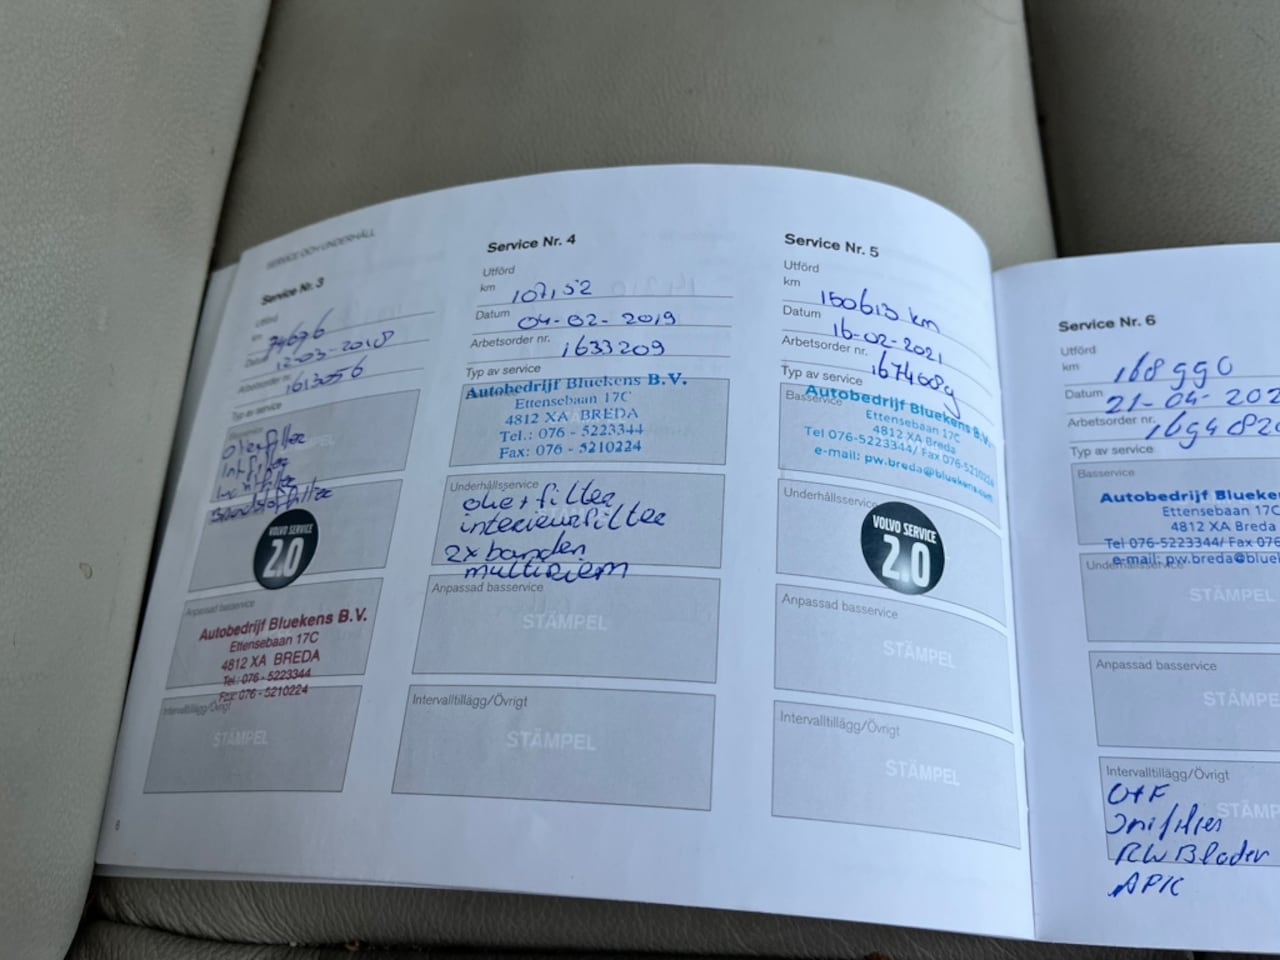 SERVICE OCH UNDERHÅLL
Service Nr. 3
Utförd
km 74676
Datum 12-03-2018
Arbetsorder nr. 1613056
Typ av service
STÄMPEL
VOLVO SERVICE
2.0
Anpassad basservice
Autobedrijf Bluekens B.V.
Ettensebaan 17C
4812 XA BREDA
Tel.: 076 - 5223344
Fax: 076 - 5210224
Intervalltillägg/Övrigt
STÄMPEL
8
Service Nr. 4
Utförd
km 107,52
Datum 04-02-2019
Arbetsorder nr. 1633209
Typ av service
Autobedrijf Bluekens B.V.
Ettensebaan 17C
4812 XA BREDA
Tel.: 076 - 5223344
Fax: 076 - 5210224
Underhållsservice
olie + filter
interieurfilter
2x banden
multiriem
Anpassad basservice
STÄMPEL
Intervalltillägg/Övrigt
STÄMPEL
Service Nr. 5
Utförd
km 150613 km
Datum 16-02-2021
Arbetsorder nr. 167468g
Typ av service
Basservice
Autobedrijf Bluekens B.V.
Ettensebaan 17C
4812 XA Breda
Tel 076-5223344/ Fax 076-5210224
e-mail: pw.breda@bluekens.com
Underhållsservice
VOLVO SERVICE
2.0
Anpassad basservice
STÄMPEL
Intervalltillägg/Övrigt
STÄMPEL
Service Nr. 6
Utförd
km 168990
Datum 21-04-202
Arbetsorder nr. 1694820
Typ av service
Basservice
Autobedrijf Bluekens
Ettensebaan 17C
4812 XA Breda
Tel 076-5223344/ Fax 076
e-mail: pw.breda@bluel
Underhållsservice
STÄMPEL
Anpassad basservice
STÄMPE
Intervalltillägg/Övrigt
STÄMP
O+F
RW Blader
APK